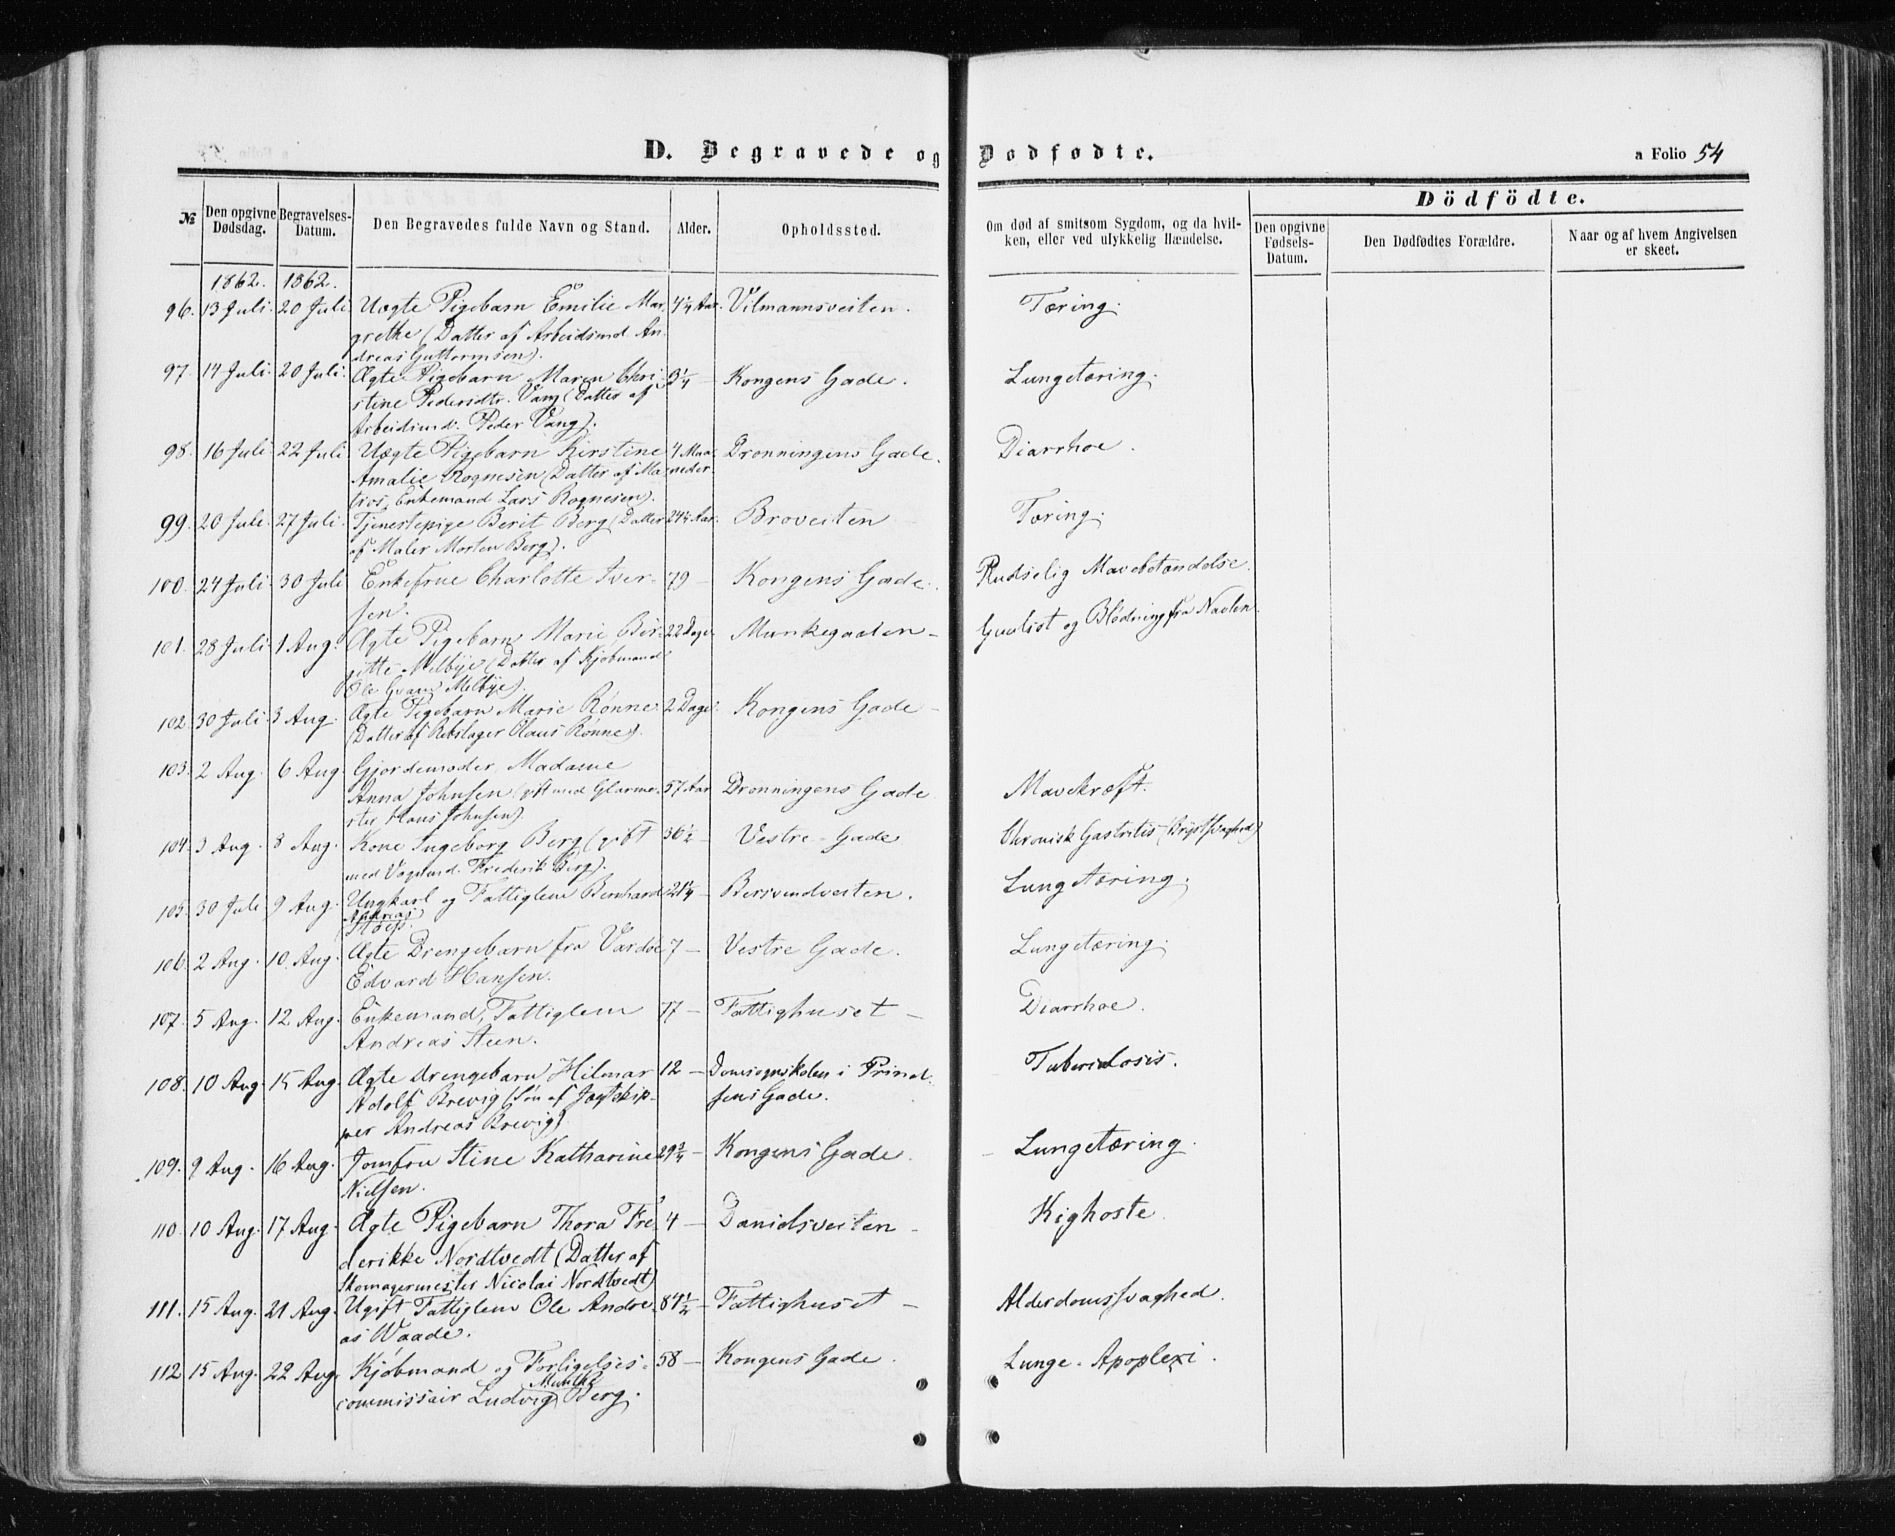 D. Begravede og Dødfødte.
a Folio 54
Dödfödte.
№ Den opgivne Dødsdag. Begravelses-Datum. Den Begravedes fulde Navn og Stand. Alder. Opholdssted. Om død af smitsom Sygdom, og da hvilken, eller ved ulykkelig Hændelse. Den opgivne Fødsels-Datum. Den Dødfødtes Forældre. Naar og af hvem Angivelsen er skeet.
1862. 1862.
96. 13 Juli. 20 Juli Uægte Pigebarn Emilie Mar- 4¼ Aar. Vilmannsveiten. Tæring.
grethe (Datter af Arbeidsmd An-
dreas Guttormsen).
97. 14 Juli. 20 Juli. Ægte Pigebarn Maren Chri- 3¼ — Kongens Gade. Lungetæring.
stine Pedersdtr. Vang (Datter af
Arbeidsmd. Peder Vang).
98. 16 Juli 22 Juli Uægte Pigebarn Kirstine 4 Maa- Dronningens Gade. Diarrhoe.
Amalie Rognesen (Datter af Ma- neder.
tros, Enkemand Lars Rognesen).
99. 20 Juli. 27 Juli. Tjenestepige Berit Berg (Datter 24¼ Aar. Broveiten Tæring.
af Maler Morten Berg).
100. 24 Juli. 30 Juli Enkefrue Charlotte Iver- 79 — Kongens Gade. Pludselig Mavebetændelse.
sen.
101. 28 Juli. 1 Aug. Ægte Pigebarn Marie Bir- 22 Dage. Munkegaden — Guulsot og Blødning fra Navlen.
gitte Melbye (Datter af Kjøbmand
Ole Melbye).
102. 30 Juli. 3 Aug. Ægte Pigebarn Marie Rønne. 2 Dage. Kongens Gade —
(Datter af Rebslager Claus Rønne).
103. 2 Aug. 6 Aug. Gjordemoder, Madame
Anna Johnsen (gift med Glarme- 57 Aar Dronningens Gade Mavekræft.
ster Hans Johnsen).
104. 3 Aug. 8 Aug. Kone Ingeborg Berg (gift 36½ — Vestre-Gade Chronisk Gastritis (Brystsvaghed)
med Vognmd. Frederik Berg).
105. 30 Juli 9 Aug. Ungkarl og Fattiglem Bernhard 21¼ — Bersvendveiten. Lungetæring.
Andreas
106. 2 Aug. 10. Aug. Ægte Drengebarn fra Vardøe 7 — Vestre Gade. Lungetæring.
Edvard Hansen.
107. 5 Aug. 12 Aug. Enkemand, Fattiglem 77 — Fattighuset — Diarrhoe.
Andreas Steen.
108. 10 Aug. 15 Aug. Ægte Drengebarn Hilmar 12 — Domsognskolen i Prind- Tuberculosis.
Adolf Brevig (Søn af Jagtskip- sens Gade.
per Andreas Brevig)
109. 9 Aug. 16 Aug. Jomfru Stine Katharine 29¾ — Kongens Gade. Lungetæring.
Nielsen.
110. 10 Aug. 17 Aug. Ægte Pigebarn Thora Fre- 4 — Danielsveiten — Kighoste.
derikke Nordtvedt (Datter af
Skomagermester Nicolai Nordtvedt)
111. 15 Aug. 21 Aug. Ugift Fattiglem Ole Andre- 87½ — Fattighuset — Alderdomssvaghed.
as Waade.
112 15 Aug. 22 Aug. Kjøbmand og Forligelses- 58 — Kongens Gade. Lunge-Apoplexi.
commissair Ludvig Berg.